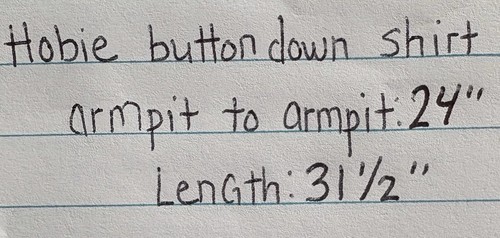 Hobie button down shirt
armpit to armpit: 24"
Length: 31 1/2"